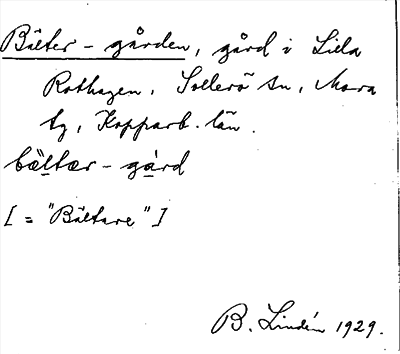 Bälter-gården, gård i Lilla
Rothagen, Sollerö sn, Mora
tg, Kopparb. län.
bältær-gård
[ = "Bältare" ]
B. Lindén 1929.